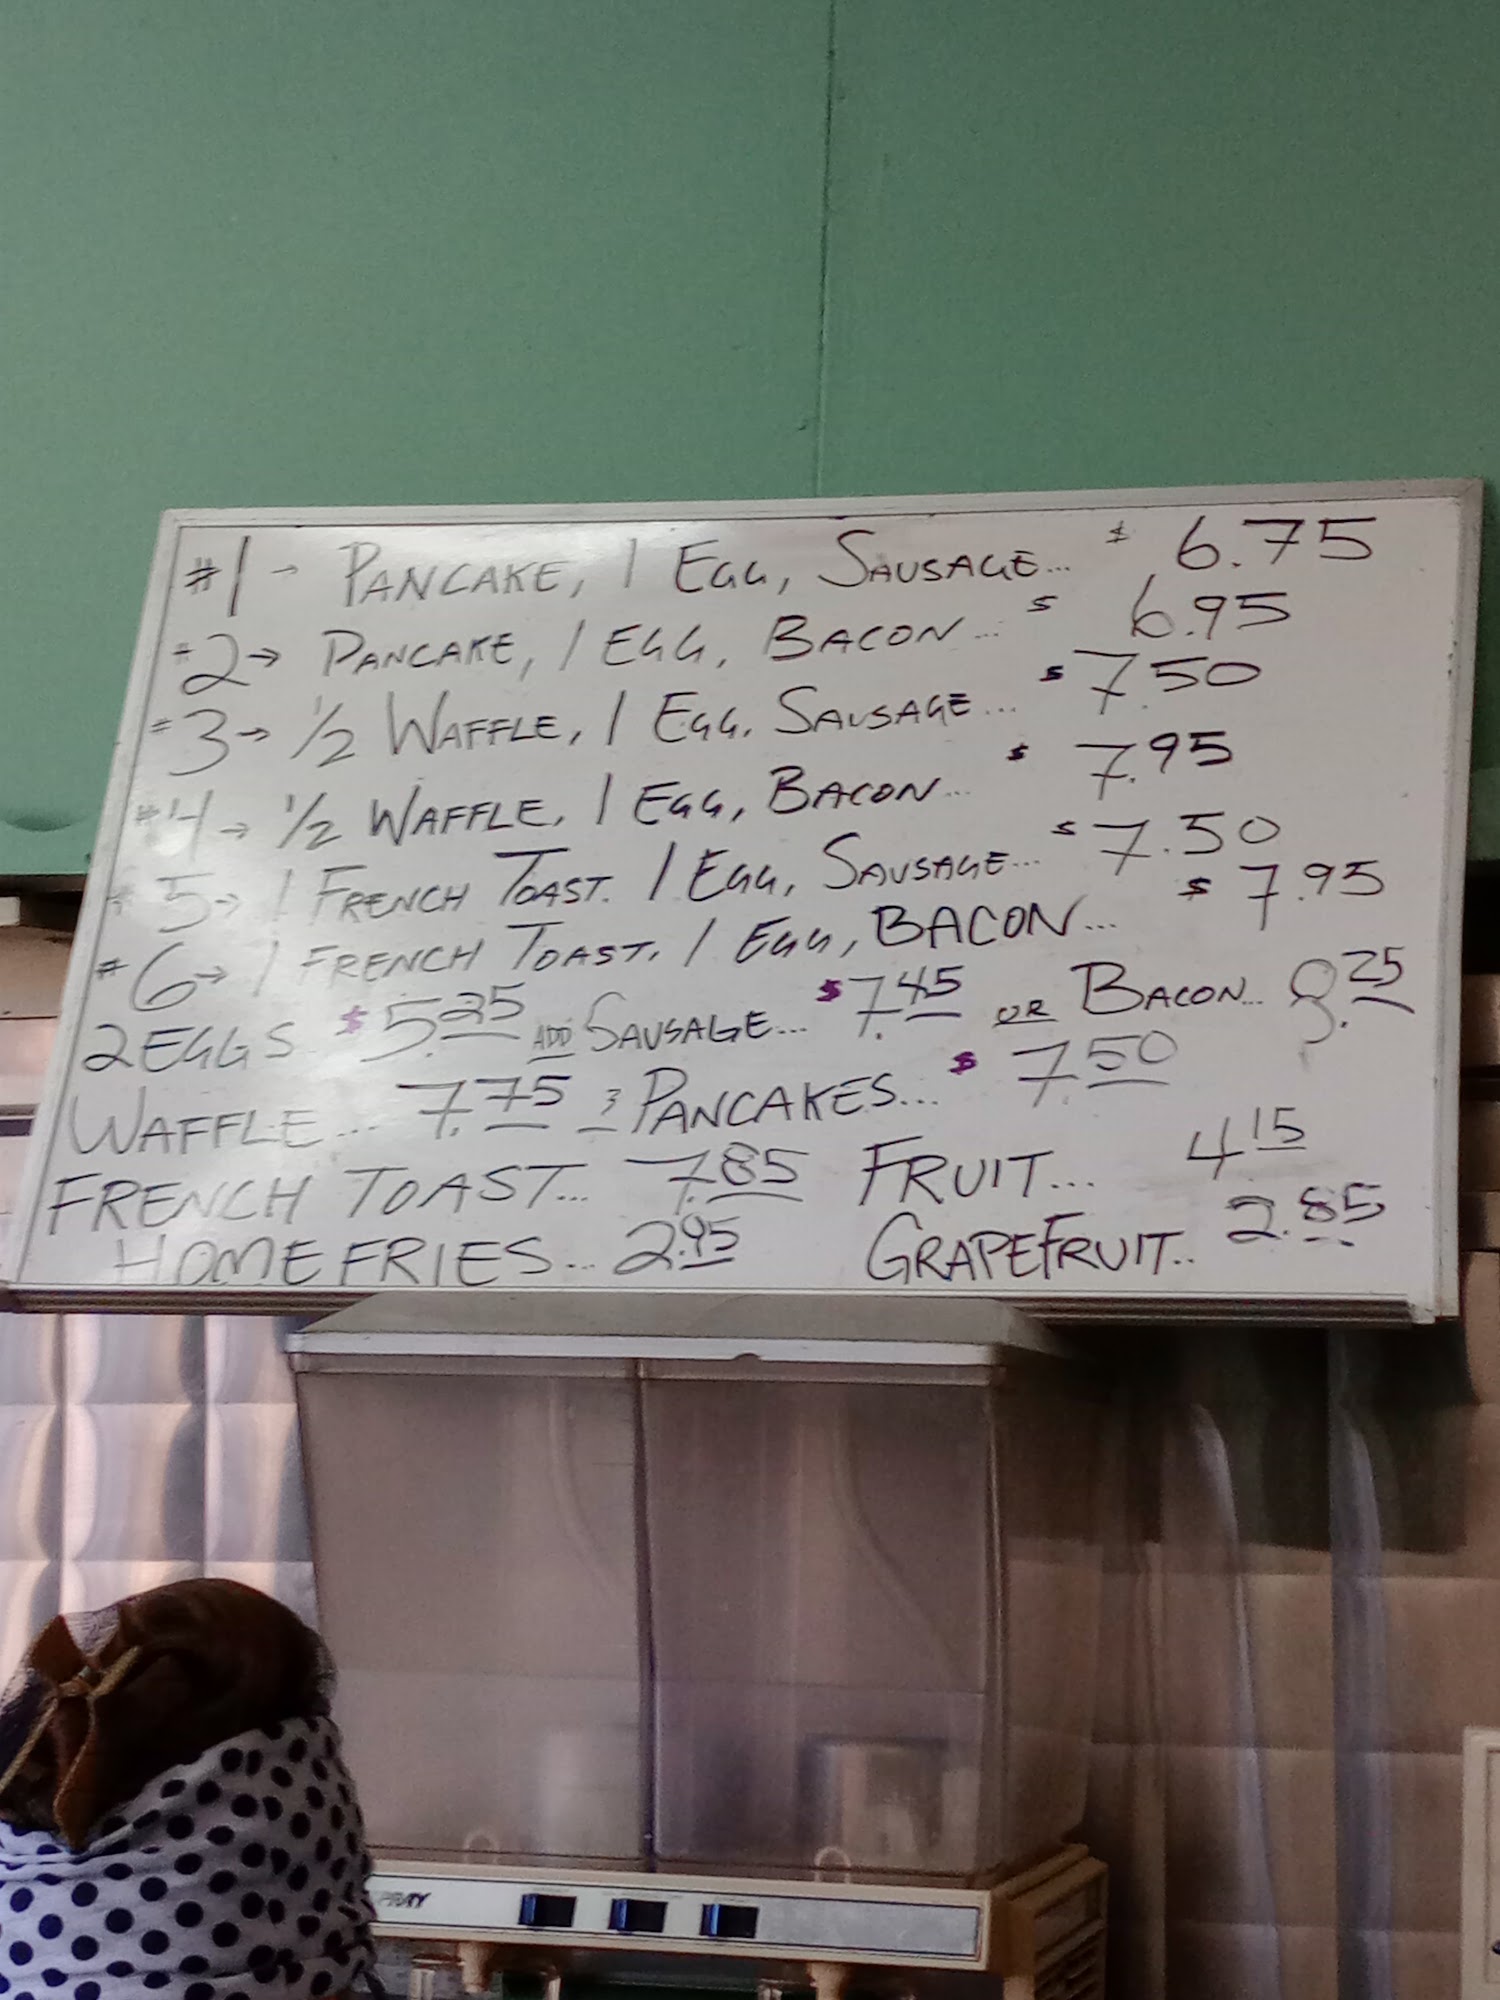 #1 → PANCAKE, 1 EGG, SAUSAGE... $ 6.75
#2 → PANCAKE, 1 EGG, BACON... $ 6.95
#3 → 1/2 WAFFLE, 1 EGG, SAUSAGE... $ 7.50
#4 → 1/2 WAFFLE, 1 EGG, BACON... $ 7.95
#5 → 1 FRENCH TOAST. 1 EGG, SAUSAGE... $ 7.50
#6 → 1 FRENCH TOAST. 1 EGG, BACON... $ 7.95
2 EGGS $ 5.25 ADD SAUSAGE... $ 7.45 OR BACON... 8.25
WAFFLE... 7.75 3 PANCAKES... $ 7.50
FRENCH TOAST... 7.85 FRUIT... 4 15
HOME FRIES... 2.95 GRAPEFRUIT.. 2.85